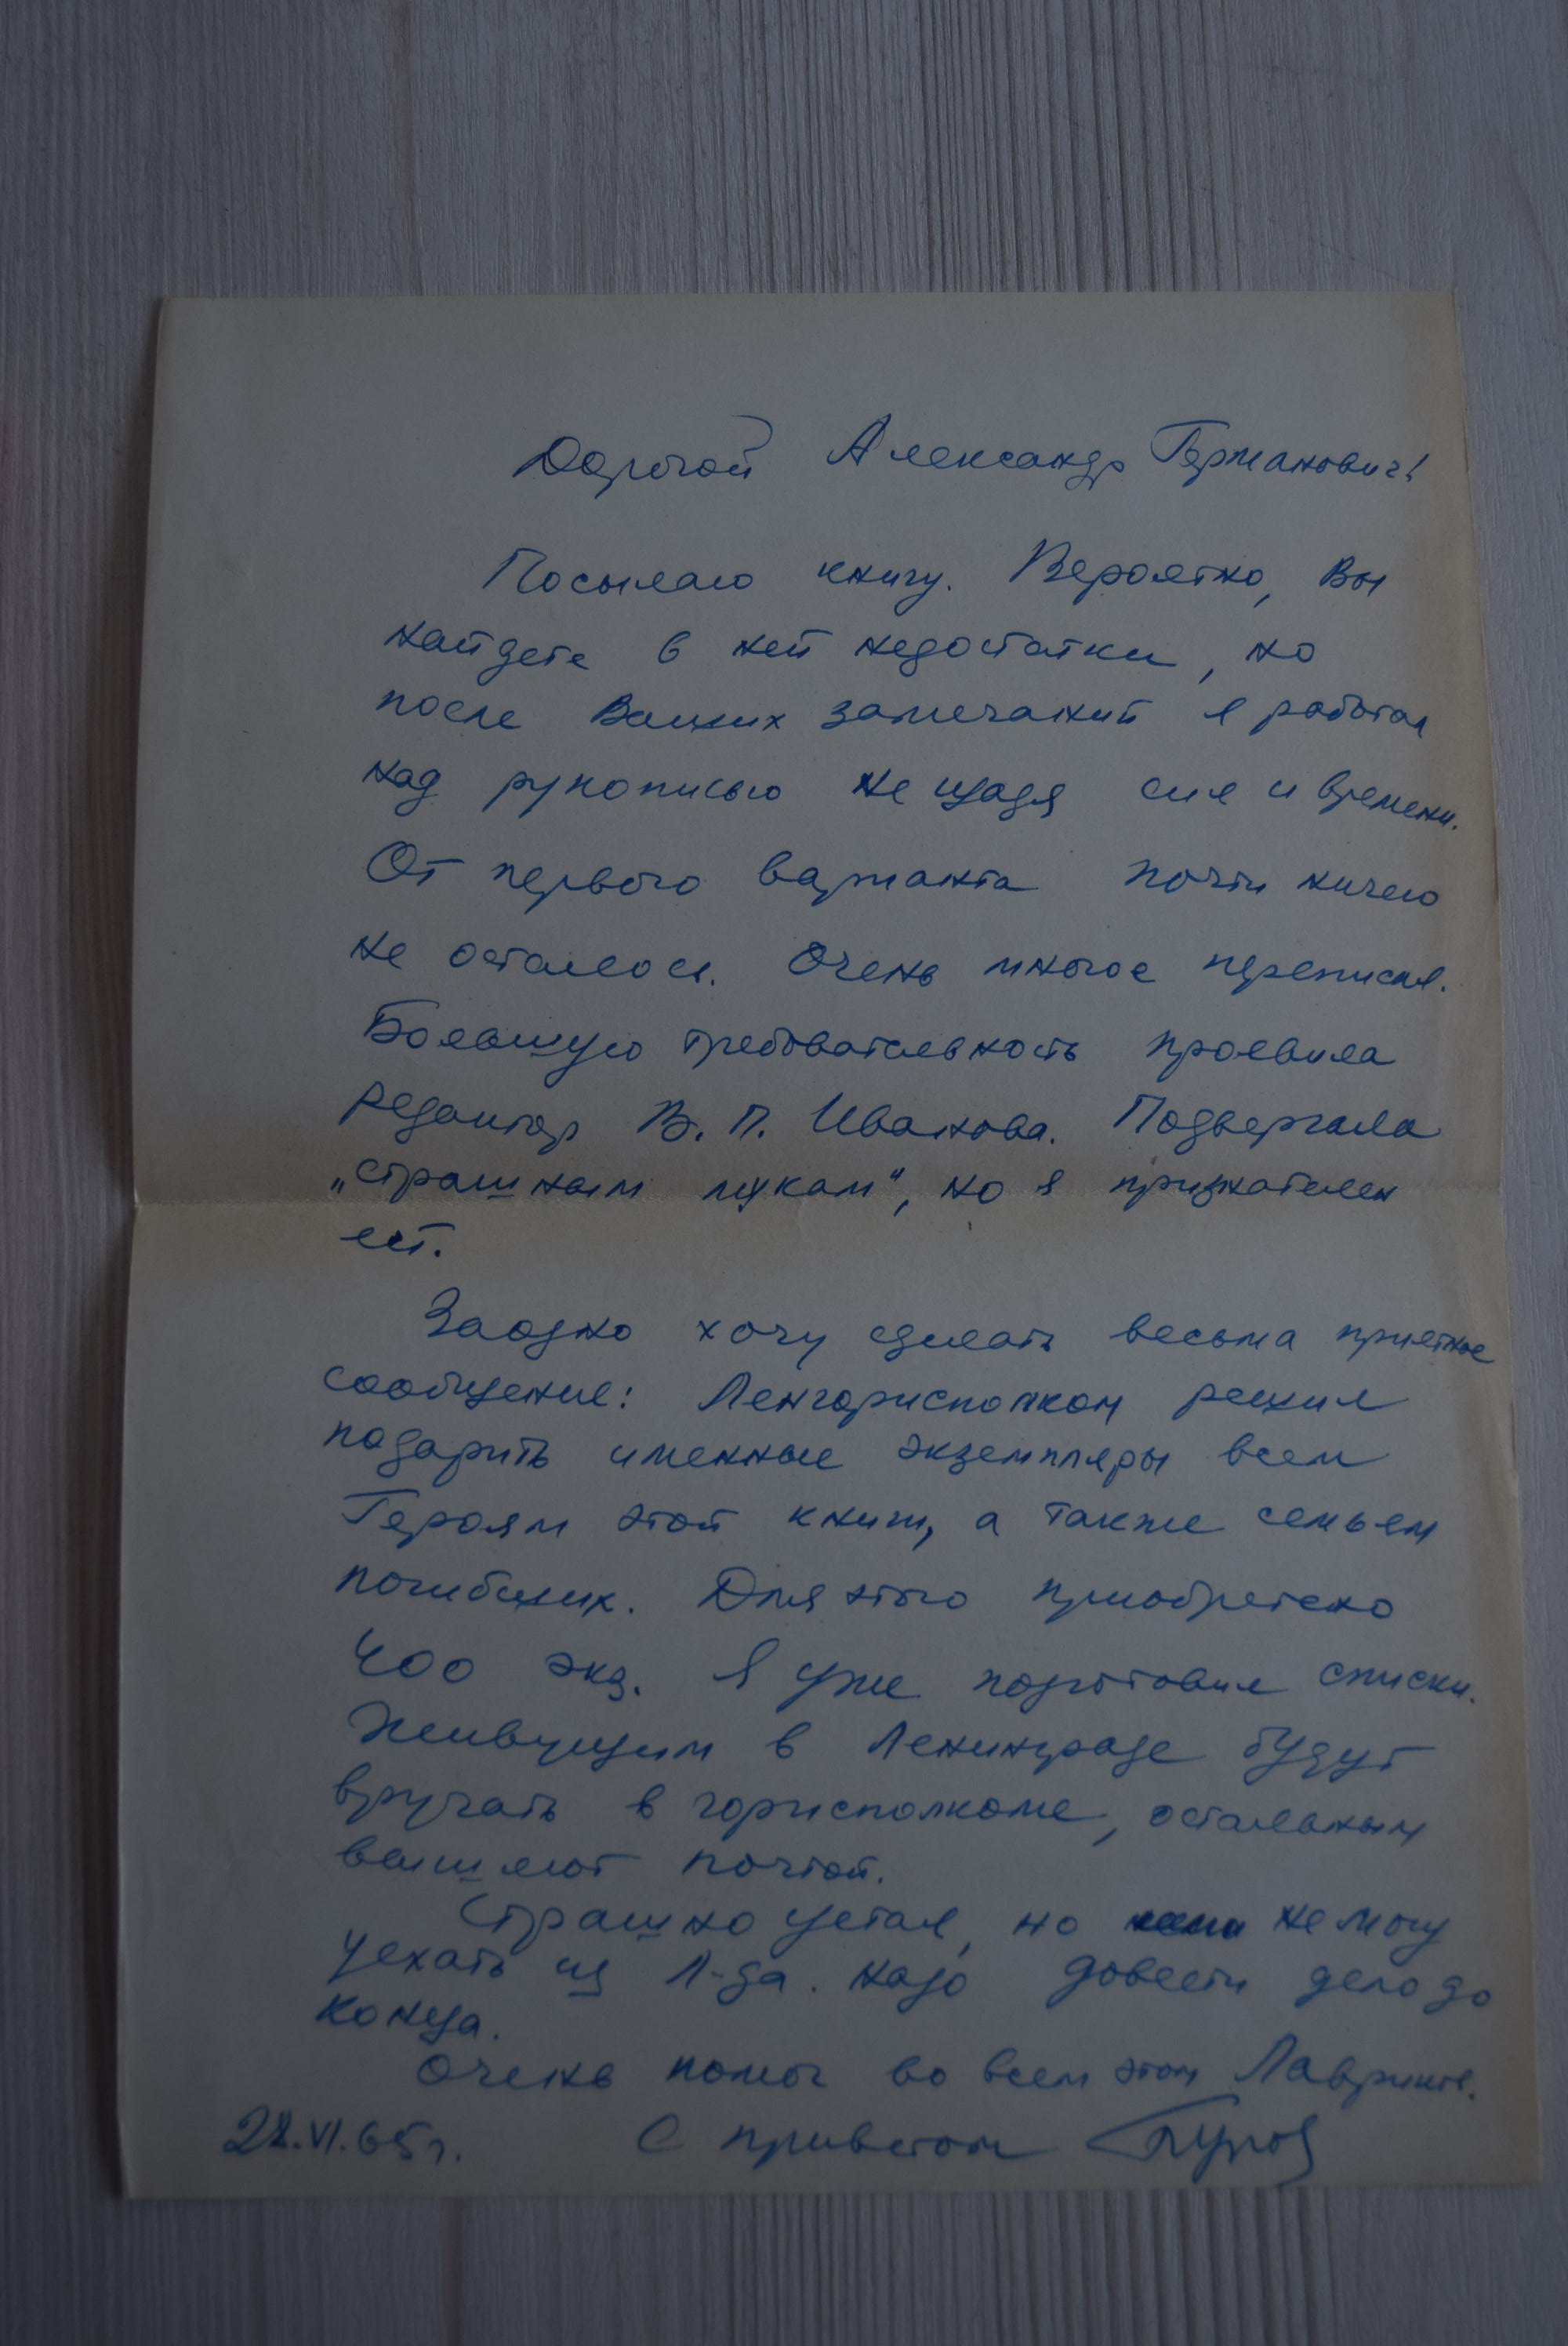 Дорогой Александр Германович!
Посылаю книгу. Вероятно, Вы
найдете в ней недостатки, но
после Ваших замечаний я работал
над рукописью не щадя сил и времени.
От первого варианта почти ничего
не осталось. Очень многое переписал.
Большую требовательность проявила
редактор В. П. Иванова. Подвергала
„страшным мукам“, но я признателен
ей.
Заодно хочу сделать весьма приятное
сообщение: Ленгорисполком решил
подарить именные экземпляры всем
Героям этой книги, а также семьям
погибших. Для этого приобретено
400 экз. Я уже подготовил списки.
Живущим в Ленинграде будут
вручать в горисполкоме, остальным
вышлют почтой.
Страшно устал, но не могу
уехать из Л-да. надо довести дело до
конца.
Очень помог во всем этом
28.VI.65г. С приветом Буров